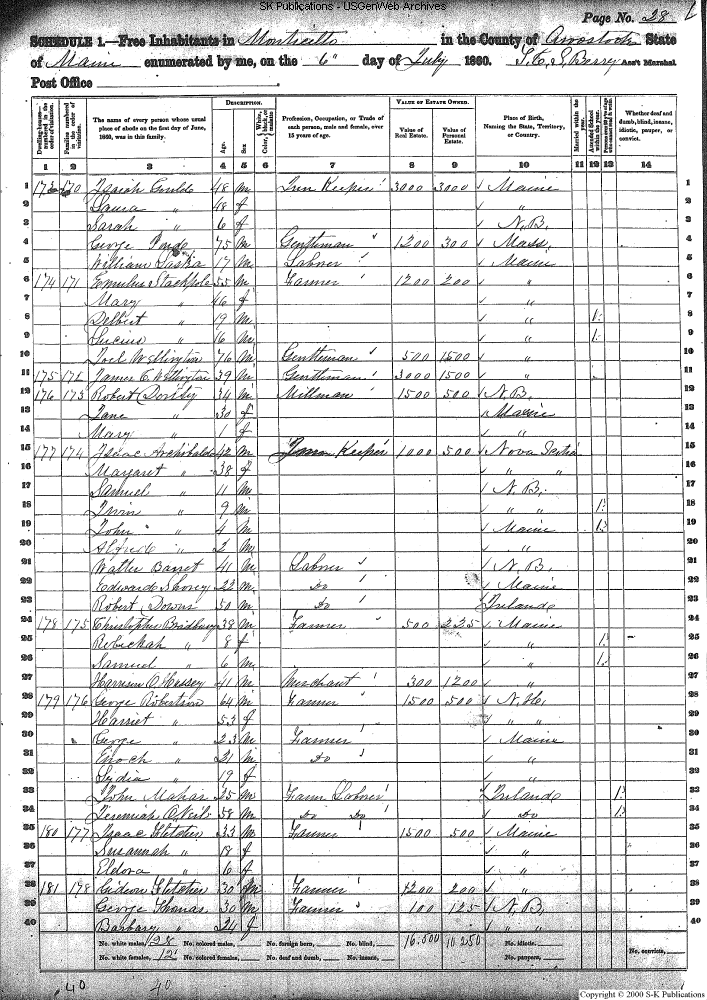 SK Publications - USGenWeb Archives
Page No. 28
SCHEDULE 1.—Free Inhabitants in Monticello in the County of Aroostook State
of Maine enumerated by me, on the 6" day of July 1860. Ass't Marshal
Post Office
Dwelling-houses— numbered in the order of visitation.
Families numbered in the order of visitation.
The name of every person whose usual place of abode on the first day of June, 1860, was in this family.
DESCRIPTION.
Age.
Sex
Color,
Profession, Occupation, or Trade of each person, male and female, over 15 years of age.
VALUE OF ESTATE OWNED.
Value of Real Estate.
Value of Personal Estate.
Place of Birth, Naming the State, Territory, or Country.
Married within the year.
Attended School within the year.
Whether deaf and dumb, blind, insane, idiotic, pauper, or convict.
1 2 3 4 5 6 7 8 9 10 11 12 13 14
1 173 170 Isaiah Gould 48 m Inn Keeper 3000 3000 Maine 1
2 Laura " 48 f " 2
3 Sarah " 6 f N.B. 3
4 George 75 m Gentleman 1200 300 Mass. 4
5 William 17 m Labor Maine 5
6 174 171 Stackpole 55 m Farmer 1200 200 " 6
7 Mary " 46 f " 7
8 Delbert " 19 m " 1 8
9 Lucius " 16 m " 1 9
10 Joel Wellington 76 m Gentleman 500 1500 " 10
11 175 172 James C. Wellington 39 m Gentleman 3000 1500 " 11
12 176 173 Robert 34 m Millman 1500 500 N.B. 12
13 Jane " 30 f Maine 13
14 Mary " 1 f " 14
15 177 174 Isaac Archibald 42 m Keeper 1000 500 Nova Scotia 15
16 Margaret " 38 f " " 16
17 Samuel " 11 m N.B. 17
18 Irvin " 9 m " " 1 18
19 John " 4 m Maine 1 19
20 " 2 m " 20
21 Walter Barret 41 m Labor N.B. 21
22 Edward Shorey 22 m Do Maine 22
23 Robert Downs 50 m Do Ireland 23
24 178 175 Christopher Bradbury 38 m Farmer 500 225 Maine 24
25 Rebeckah " 8 f " 1 25
26 Samuel " 6 m " 1 26
27 Harrison O Hussey 41 m Merchant 300 1200 " 27
28 179 176 George Robertson 64 m Farmer 1500 500 N.H. 28
29 Harriet " 53 f " " 29
30 George " 23 m Farmer Maine 30
31 Enoch " 21 m Do " 31
32 Lydia " 19 f " 32
33 John Mahar 25 m Farm Labor Ireland 1 33
34 Jeremiah O'Neil 58 m Do Do Do 1 34
35 180 177 Isaac Fletcher 33 m Farmer 1500 500 Maine 35
36 Susannah " 18 f " 36
37 Eldora " 6 f " 37
38 181 178 Gideon Fletcher 30 m Farmer 1200 200 " 38
39 George Thomas 30 m Farmer 100 125 N.B. 39
40 Barbary " 24 f " 40
No. white males, 28 No. colored males, No. foreign born, No. blind, 16.500 10 250 No. idiotic,
No. white females, 12 No. colored females, No. deaf and dumb, No. insane, No. paupers, No. convicts,
40 40
Copyright © 2000 S-K Publications